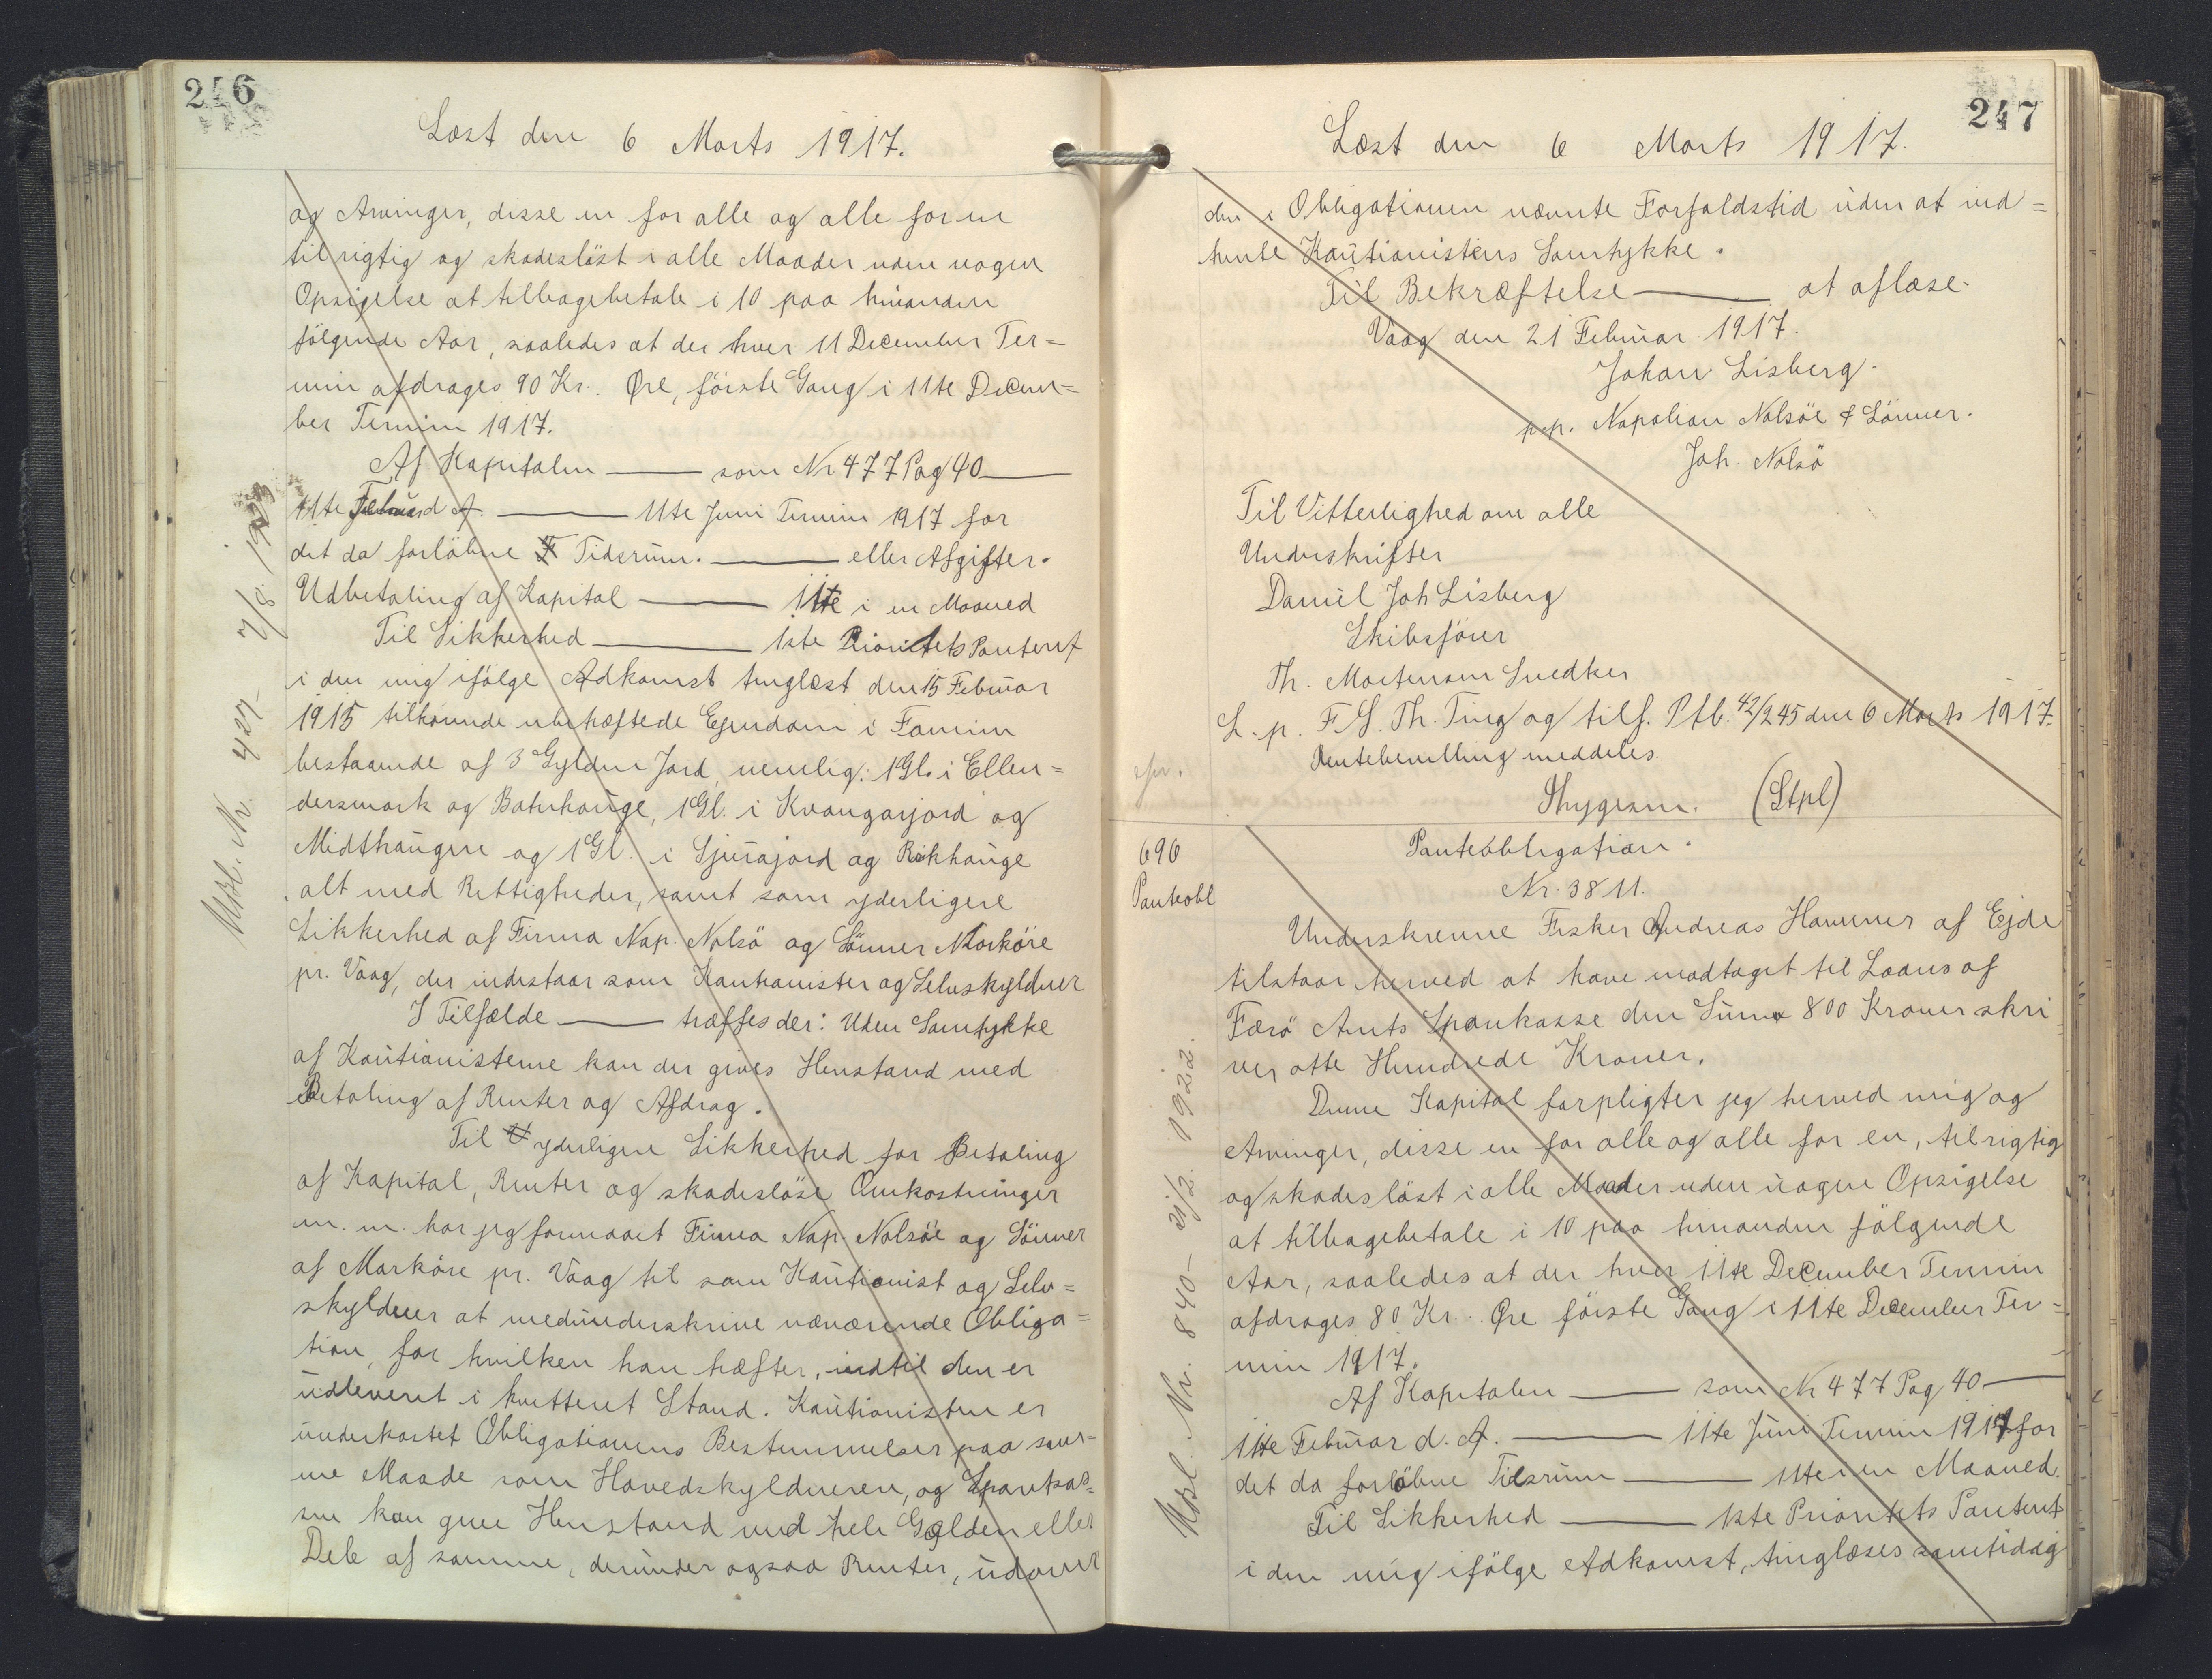 246
Læst den 6 Marts 1917.
og Arvinger, disse en for alle og alle for en
til rigtig og skadesløst i alle Maader uden nogen
Opsigelse at tilbagebetale i 10 paa hinanden
følgende Aar, saaledes at der hver 11 December Ter=
min afdrages 90 Kr. Øre, første Gang i 11te Decem=
ber Termin 1917.
Af Kapitalen ——— som Nr 477 Pag 40 ———
11te Februar d A. ——— 11te Juni Termin 1917 for
det da forløbne Tidsrum. ——— eller Afgifter.
Udbetaling af Kapital ——— 11te i en Maaned
Til Sikkerhed ——— 1ste Prioritets Panteret
i den mig ifølge Adkomst tinglæst den 15 Februar
1915 tilhørende ubehæftede Ejendom i Famien
bestaaende af 3 Gylden Jord, nemlig: 1 Gl. i Ellen=
dersmark og Bøtuhauge, 1 Gl. i Kvangarjord og
Midthaugen og 1 Gl. i Sjurajord og Rókhauge
alt med Rettigheder, samt som yderligere
Sikkerhed af Firma Nap. Nolsö og Sönner Marköre
pr. Vaag, der indestaar som Kautionister og Selvskyldner
I Tilfælde ——— træffes der: Uden Samtykke
af Kautionisterne kan der gives Henstand med
Betaling af Renter og Afdrag.
Til yderligere Sikkerhed for Betaling
af Kapital, Renter og skadesløse Omkostninger
m. m. har jeg formaaet Firma Nap. Nolsöe og Sönner
af Marköre pr. Vaag til som Kautionist og Selv=
skyldner at medunderskrive nærværende Obliga=
tion, for hvilken han hæfter, indtil den er
udleveret i kvitteret Stand. Kautionisten er
underkastet Obligationens Bestemmelser paa sam=
me Maade som Hovedskyldneren, og Sparekas=
sen kan give Henstand med hele Gælden eller
Dele af samme, derunder ogsaa Renter, udover
Udsl. Nr. 427 - 7/8. 1923
247
Læst den 6 Marts 1917.
den i Obligationen nævnte Forfaldstid uden at ind=
hente Kautionistens Samtykke.
Til Bekræftelse ——— at aflæse.
Vaag den 21 Februar 1917.
Johan Lisberg.
p.p. Napolion Nolsöe & Sönner.
Joh. Nolsö
Til Vitterlighed om alle
Underskrifter
Daniel Joh Lisberg
Skibsfører
Th. Mortensen Snedker
L. p. F. S. Th. Ting og tilf. Ptb. 42/245 den 6 Marts 1917.
Rentebevilling meddeles.
Thygesen. (Stpl)
696
Panteobl
Panteobligation.
Nr. 3811.
Underskrevne Fisker Andreas Hammer af Ejde
tilstaar herved at have modtaget til Laans af
Færö Amts Sparekasse den Sum 800 Kroner skri
ver otte Hundrede Kroner.
Denne Kapital forpligter jeg herved mig og
Arvinger, disse en for alle og alle for en, til rigtig
og skadesløst i alle Maader uden nogen Opsigelse
at tilbagebetale i 10 paa hinanden følgende
Aar, saaledes at der hver 11te December Termin
afdrages 80 Kr. Øre første Gang i 11te December Ter=
min 1917.
Af Kapitalen ——— som Nr 477 Pag 40 ———
11te Februar d. A. ——— 11te Juni Termin 1917 for
det da forløbne Tidsrum ——— 11te i en Maaned.
Til Sikkerhed ——— 1ste Prioritets Panteret
i den mig ifølge Adkomst, tinglæses samtidig
Udsl. Nr. 840 - 21/2. 1922.